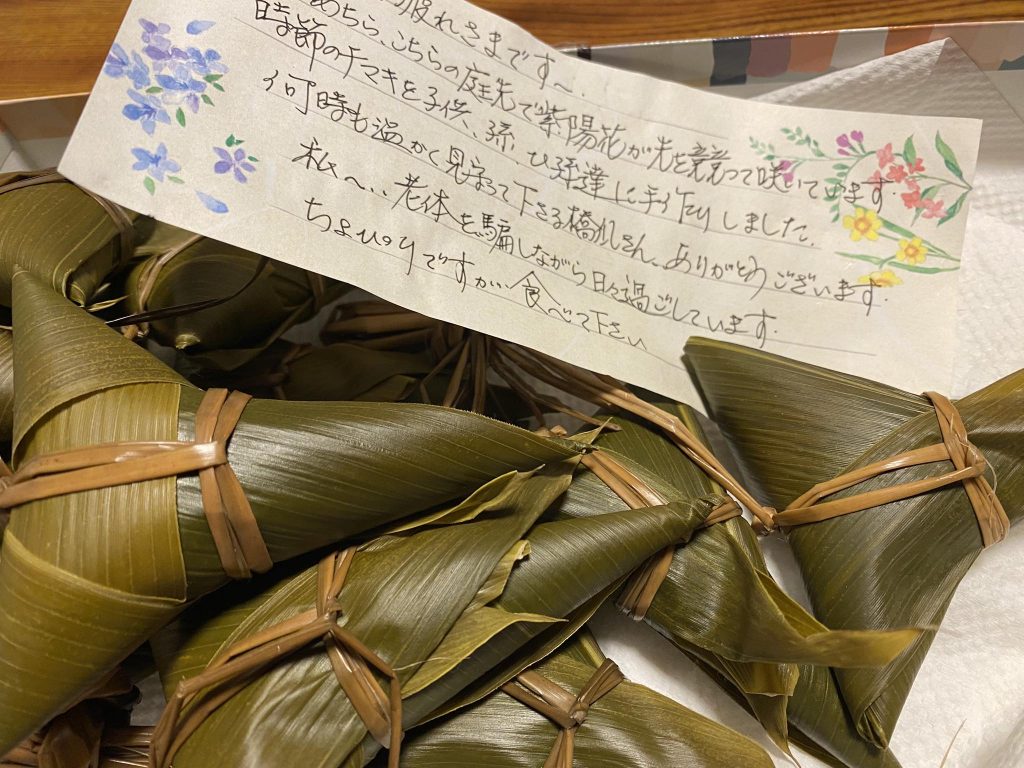 疲れさまです〜
あちら、こちらの庭先で紫陽花が先を競って咲いています
時節のチマキを子供、孫、ひ孫達に手作りしました。
何時も温かく見守って下さる橋爪さん、ありがとうございます。
私〜、老体を騙しながら日々過ごしています。
ちょぴりですが、食べて下さい